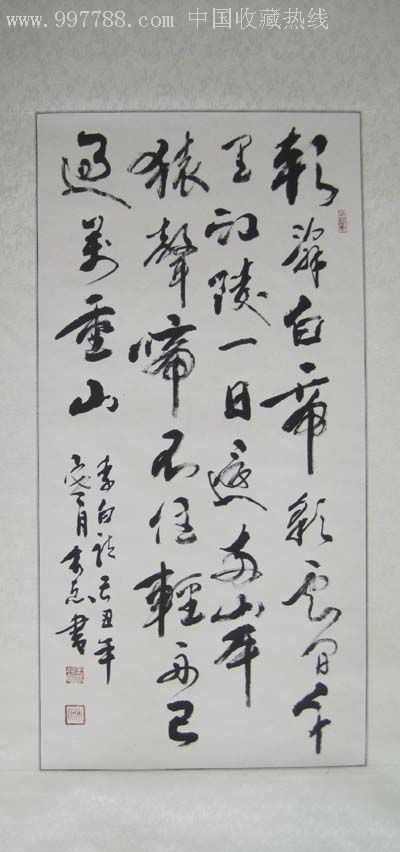 www.997788.com 中国收藏热线
朝辭白帝彩雲間千
里江陵一日還两岸
猿聲啼不住輕舟已
過萬重山
李白詩己丑年
月書